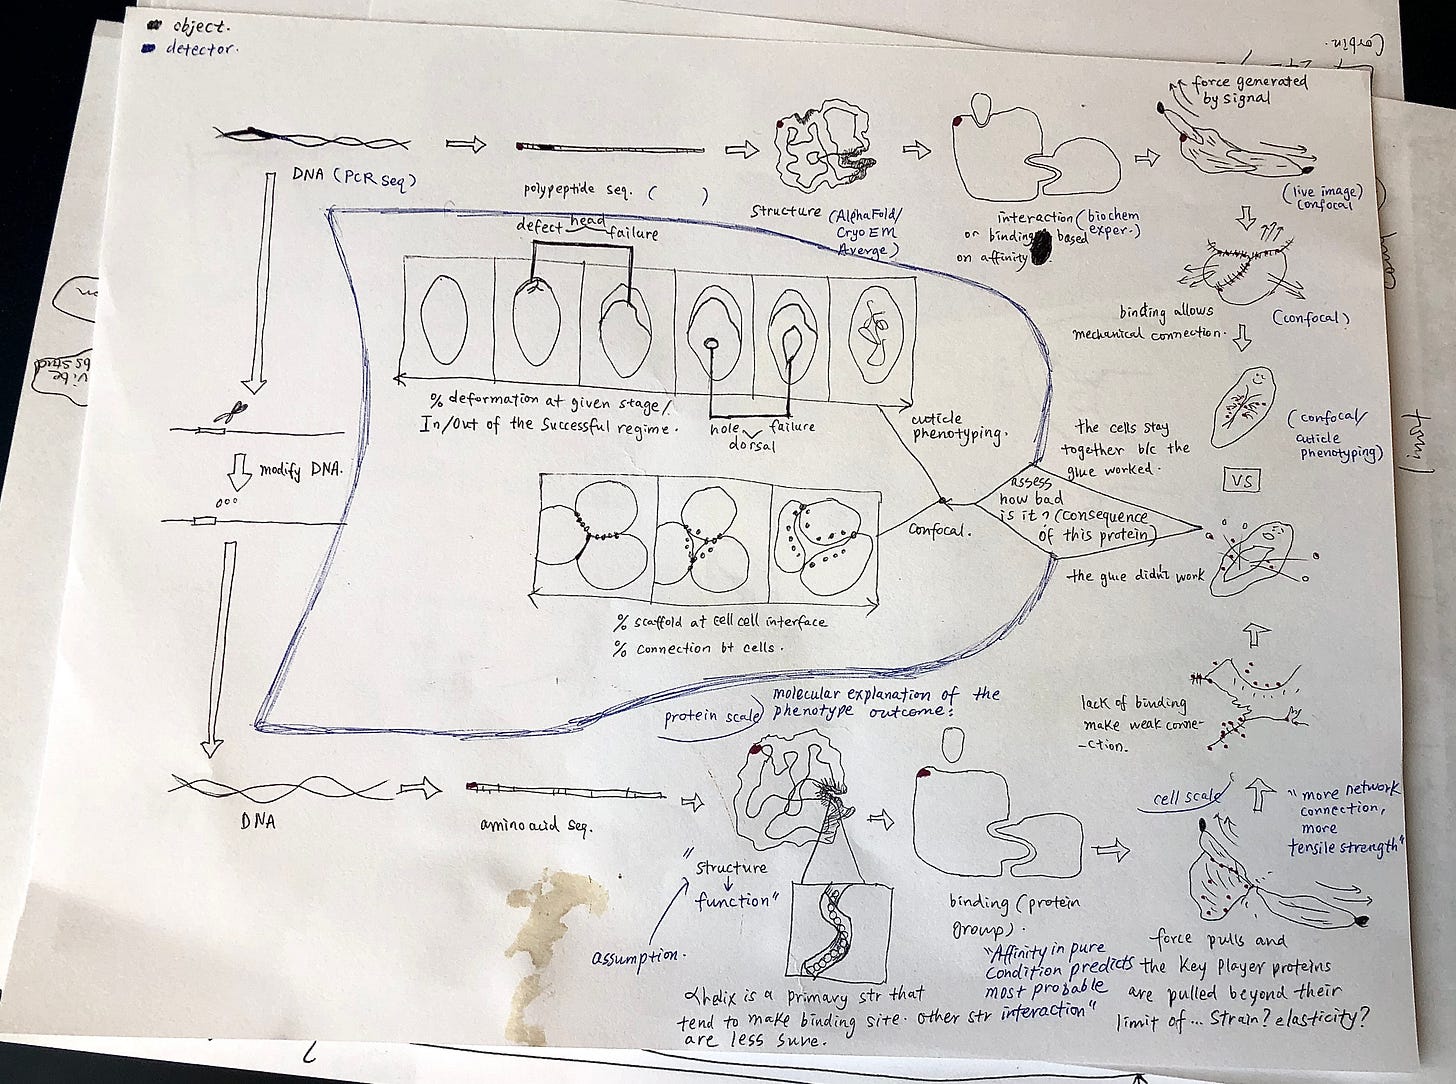 object.
detector.
Corbin.
force generated
by signal
DNA (PCR seq)
polypeptide seq. ( )
Structure (AlphaFold/
Cryo EM
Averge)
interaction (biochem
exper.)
or binding based
on affinity
(live image)
confocal
binding allows
mechanical connection.
(confocal)
defect head failure
% deformation at given stage/
In/Out of the successful regime.
hole failure
dorsal
cuticle
phenotyping.
the cells stay
together b/c the
glue worked.
(confocal/
cuticle
phenotyping)
VS
modify DNA.
assess
how bad
is it? (consequence
of this protein)
confocal.
the glue didn't work
% scaffold at cell cell interface
% connection bt cells.
protein scale
molecular explanation of the
phenotype outcome:
lack of binding
make weak conne-
-ction.
DNA
amino acid seq.
"structure
function"
assumption.
αhelix is a primary str that
tend to make binding site. other str
are less sure.
binding (protein
group).
"Affinity in pure
condition predicts
most probable
interaction"
cell scale
"more network
connection,
more
tensile strength"
force pulls and
the key player proteins
are pulled beyond their
limit of... strain? elasticity?